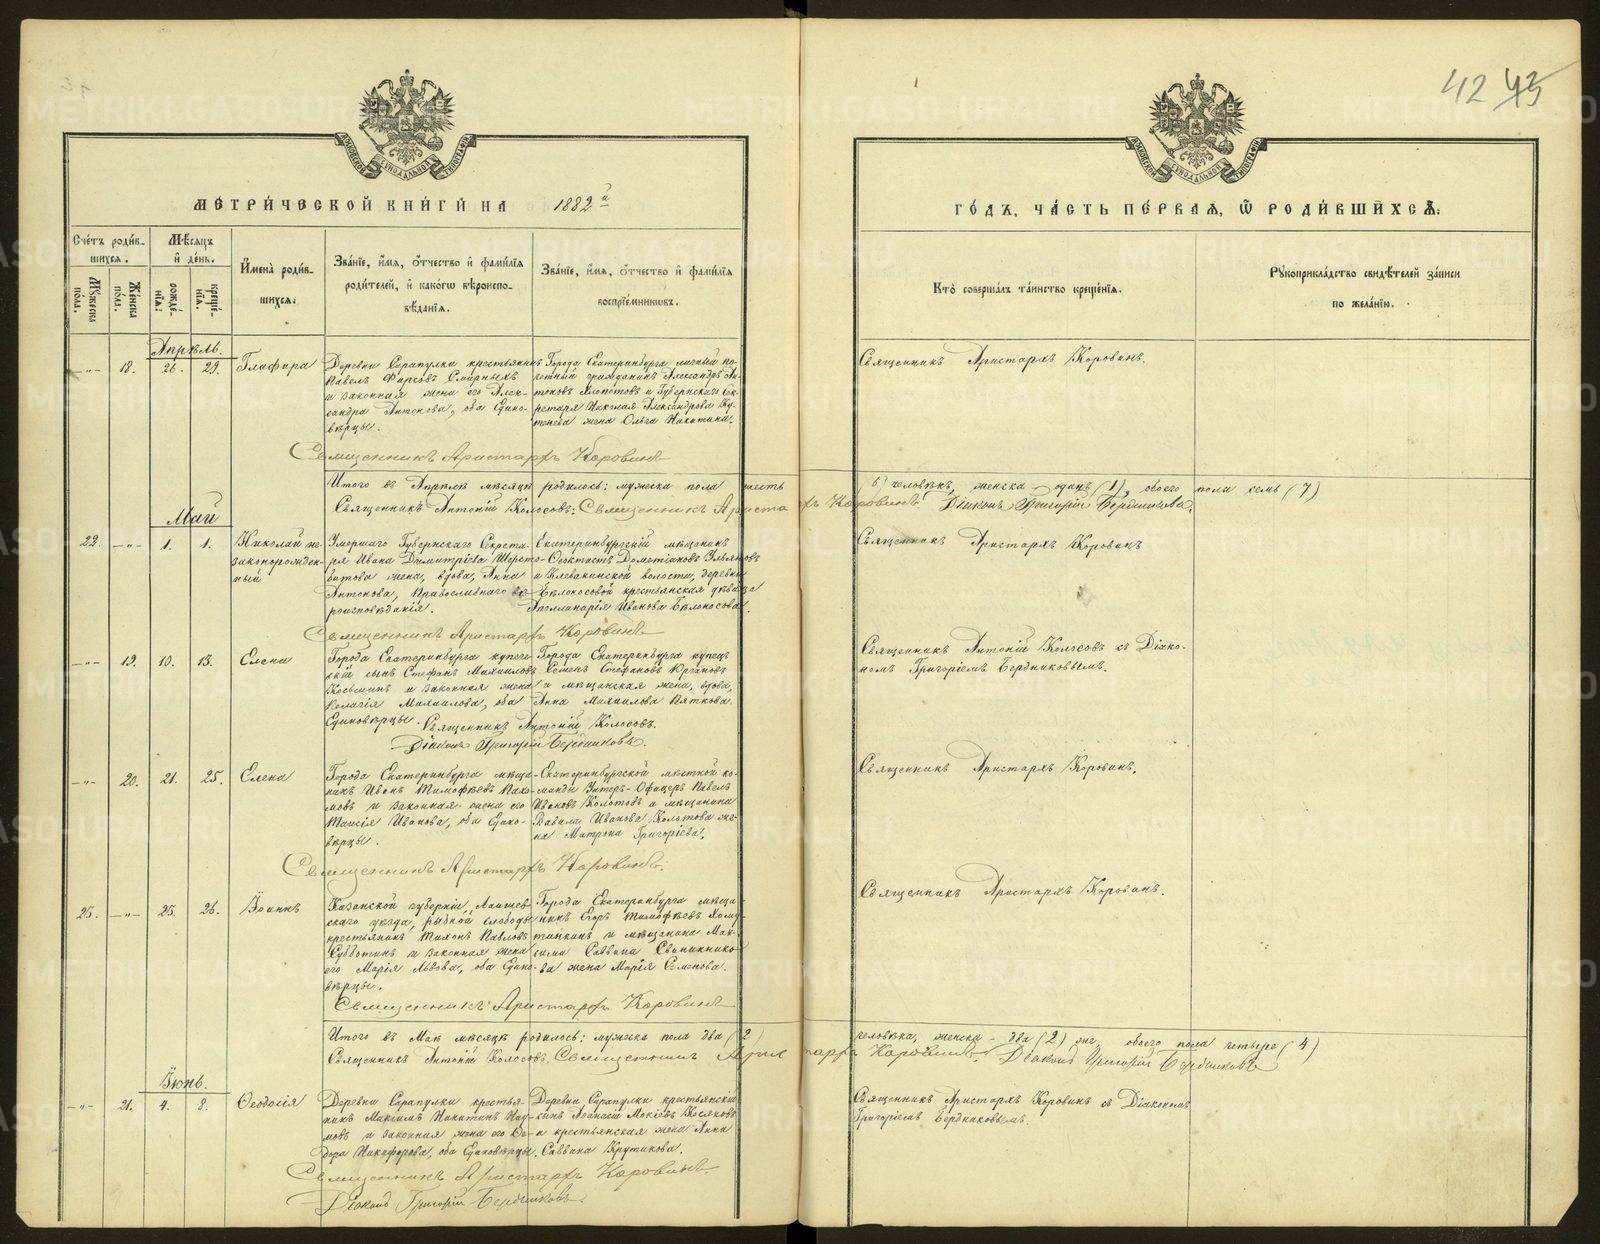 42 43
МЕТРИЧЕСКОЙ КНИГИ НА 1882й
ГОДЪ, ЧАСТЬ ПЕРВАЯ, Ѿ РОДИВШИХСЯ:
Счетъ родив-
шихся.
Мѣсяцъ
и день.
Мужеска пола.
Женска пола.
рожде-
нїя:
креще-
нїя:
Имена родив-
шихся:
Званїе, имя, отчество и фамилїя
родителей, и какогѡ вѣроиспо-
вѣданїя.
Званїе, имя, отчество и фамилїя
воспрїемниковъ.
Кто совершалъ таинство крещенїя.
Рукоприкладство свидѣтелей записи
по желанїю.
Апрѣль.
18. 26. 29. Глафира
Деревни Сарапулки крестьянинъ
Павелъ Фирсовъ Смирныхъ
и законная жена его Алек-
сандра Антонова, оба Едино-
вѣрцы.
Города Екатеринбурга личный по-
четный гражданинъ Александръ Ан-
тоновъ и Губернскаго Сек-
ретаря Николая Александрова
жена Ольга Никитина.
Священникъ Аристархъ Коровинъ.
Священникъ Аристархъ Коровинъ
Итого въ Апрѣлѣ мѣсяцѣ родилось: мужеска пола шесть (6) человѣкъ, женска одинъ (1), обоего пола семь (7)
Священникъ Антонїй Колосовъ: Священникъ Аристархъ Коровинъ. Дїаконъ Григорїй Бердниковъ.
Май
22. 1. 1. Николай не-
законорожден-
ный
Умершаго Губернскаго Секрета-
ря Ивана Димитрїева Шерсто-
битова жена, вдова, Анна
Антонова, Православнаго вѣ-
роисповѣданїя.
Екатеринбургскїй мѣщанинъ
Феоктистъ Дометїановъ Ульяновъ
и Клевакинской волости, деревни
Бѣлоносовой крестьянская дѣвица
Аполлинарїя Иванова Бѣлоносова.
Священникъ Аристархъ Коровинъ
Священникъ Аристархъ Коровинъ
19. 10. 13. Елена
Города Екатеринбурга купече-
скїй сынъ Стефанъ Михаиловъ
Косьминъ и законная жена
Пелагїя Михаилова, оба
Единовѣрцы.
Города Екатеринбурга купецъ
Семенъ Стефановъ
и мѣщанская жена, вдова,
Анна Михаилова Пяткова.
Священникъ Антонїй Колосовъ.
Дїаконъ Григорїй Бердниковъ.
Священникъ Антонїй Колосовъ съ Дїако-
номъ Григорїемъ Бердниковымъ.
20. 21. 25. Елена
Города Екатеринбурга мѣща-
нинъ Иванъ Тимофѣевъ Пахо-
мовъ и законная жена его
Таисїя Иванова, оба Едино-
вѣрцы.
Екатеринбургской мѣстной ко-
манды Унтеръ-Офицеръ Павелъ
Ивановъ Колотовъ и мѣщанина
Вавила Иванова Колотова же-
на Матрона Григорїева.
Священникъ Аристархъ Коровинъ.
Священникъ Аристархъ Коровинъ.
23. 25. 26. Їоаннъ
Казанской губернїи, Лаишев-
скаго уѣзда, рыбной слободы
крестьянинъ Тихонъ Павловъ
Субботинъ и законная жена
его Марїя Львова, оба Едино-
вѣрцы.
Города Екатеринбурга мѣща-
нинъ Егоръ Тимофѣевъ Хому-
тинкинъ и мѣщанина Мак-
сима Саввина Свининнико-
ва жена Марїя Семенова.
Священникъ Аристархъ Коровинъ
Священникъ Аристархъ Коровинъ.
Итого въ Маѣ мѣсяцѣ родилось: мужеска пола два (2) человѣка, женска - два (2) же, обоего пола четыре (4)
Священникъ Антонїй Колосовъ Священникъ Аристархъ Коровинъ. Дїаконъ Григорїй Бердниковъ
Їюнь.
21. 4. 8. Феодосїя
Деревни Сарапулки крестья-
нинъ Максимъ Никитинъ Нау-
мовъ и законная жена его Фе-
дора Никифорова, оба Единовѣрцы.
Деревни Сарапулки крестьянскїй
сынъ Афанасїй Мокїевъ Косяковъ
и крестьянская жена Анна
Саввина Крутикова.
Священникъ Аристархъ Коровинъ
Дїаконъ Григорїй Бердниковъ.
Священникъ Аристархъ Коровинъ съ Дїакономъ
Григорїемъ Бердниковымъ.
METRIKI.GASO-URAL.RU